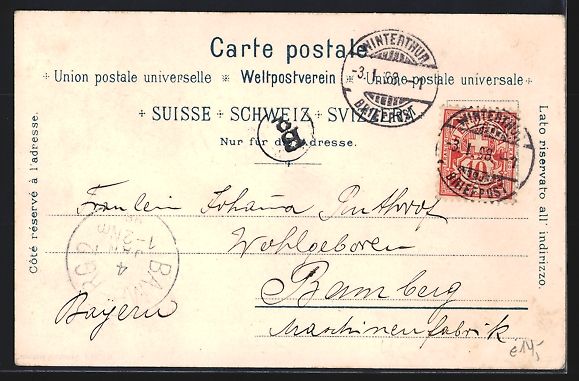 Carte postale
Union postale universelle * Weltpostverein * Unione postale universale
SUISSE + SCHWEIZ + SVIZZERA
Nur für die Adresse.
Côté réservé à l'adresse.
Lato riservato all'indirizzo.
WINTERTHUR
BRIEFPOST
WINTERTHUR
BRIEFPOST
10
Fräulein Johana
Wohlgeboren
Bamberg
Bayern
Maschinenfabrik
€14,-